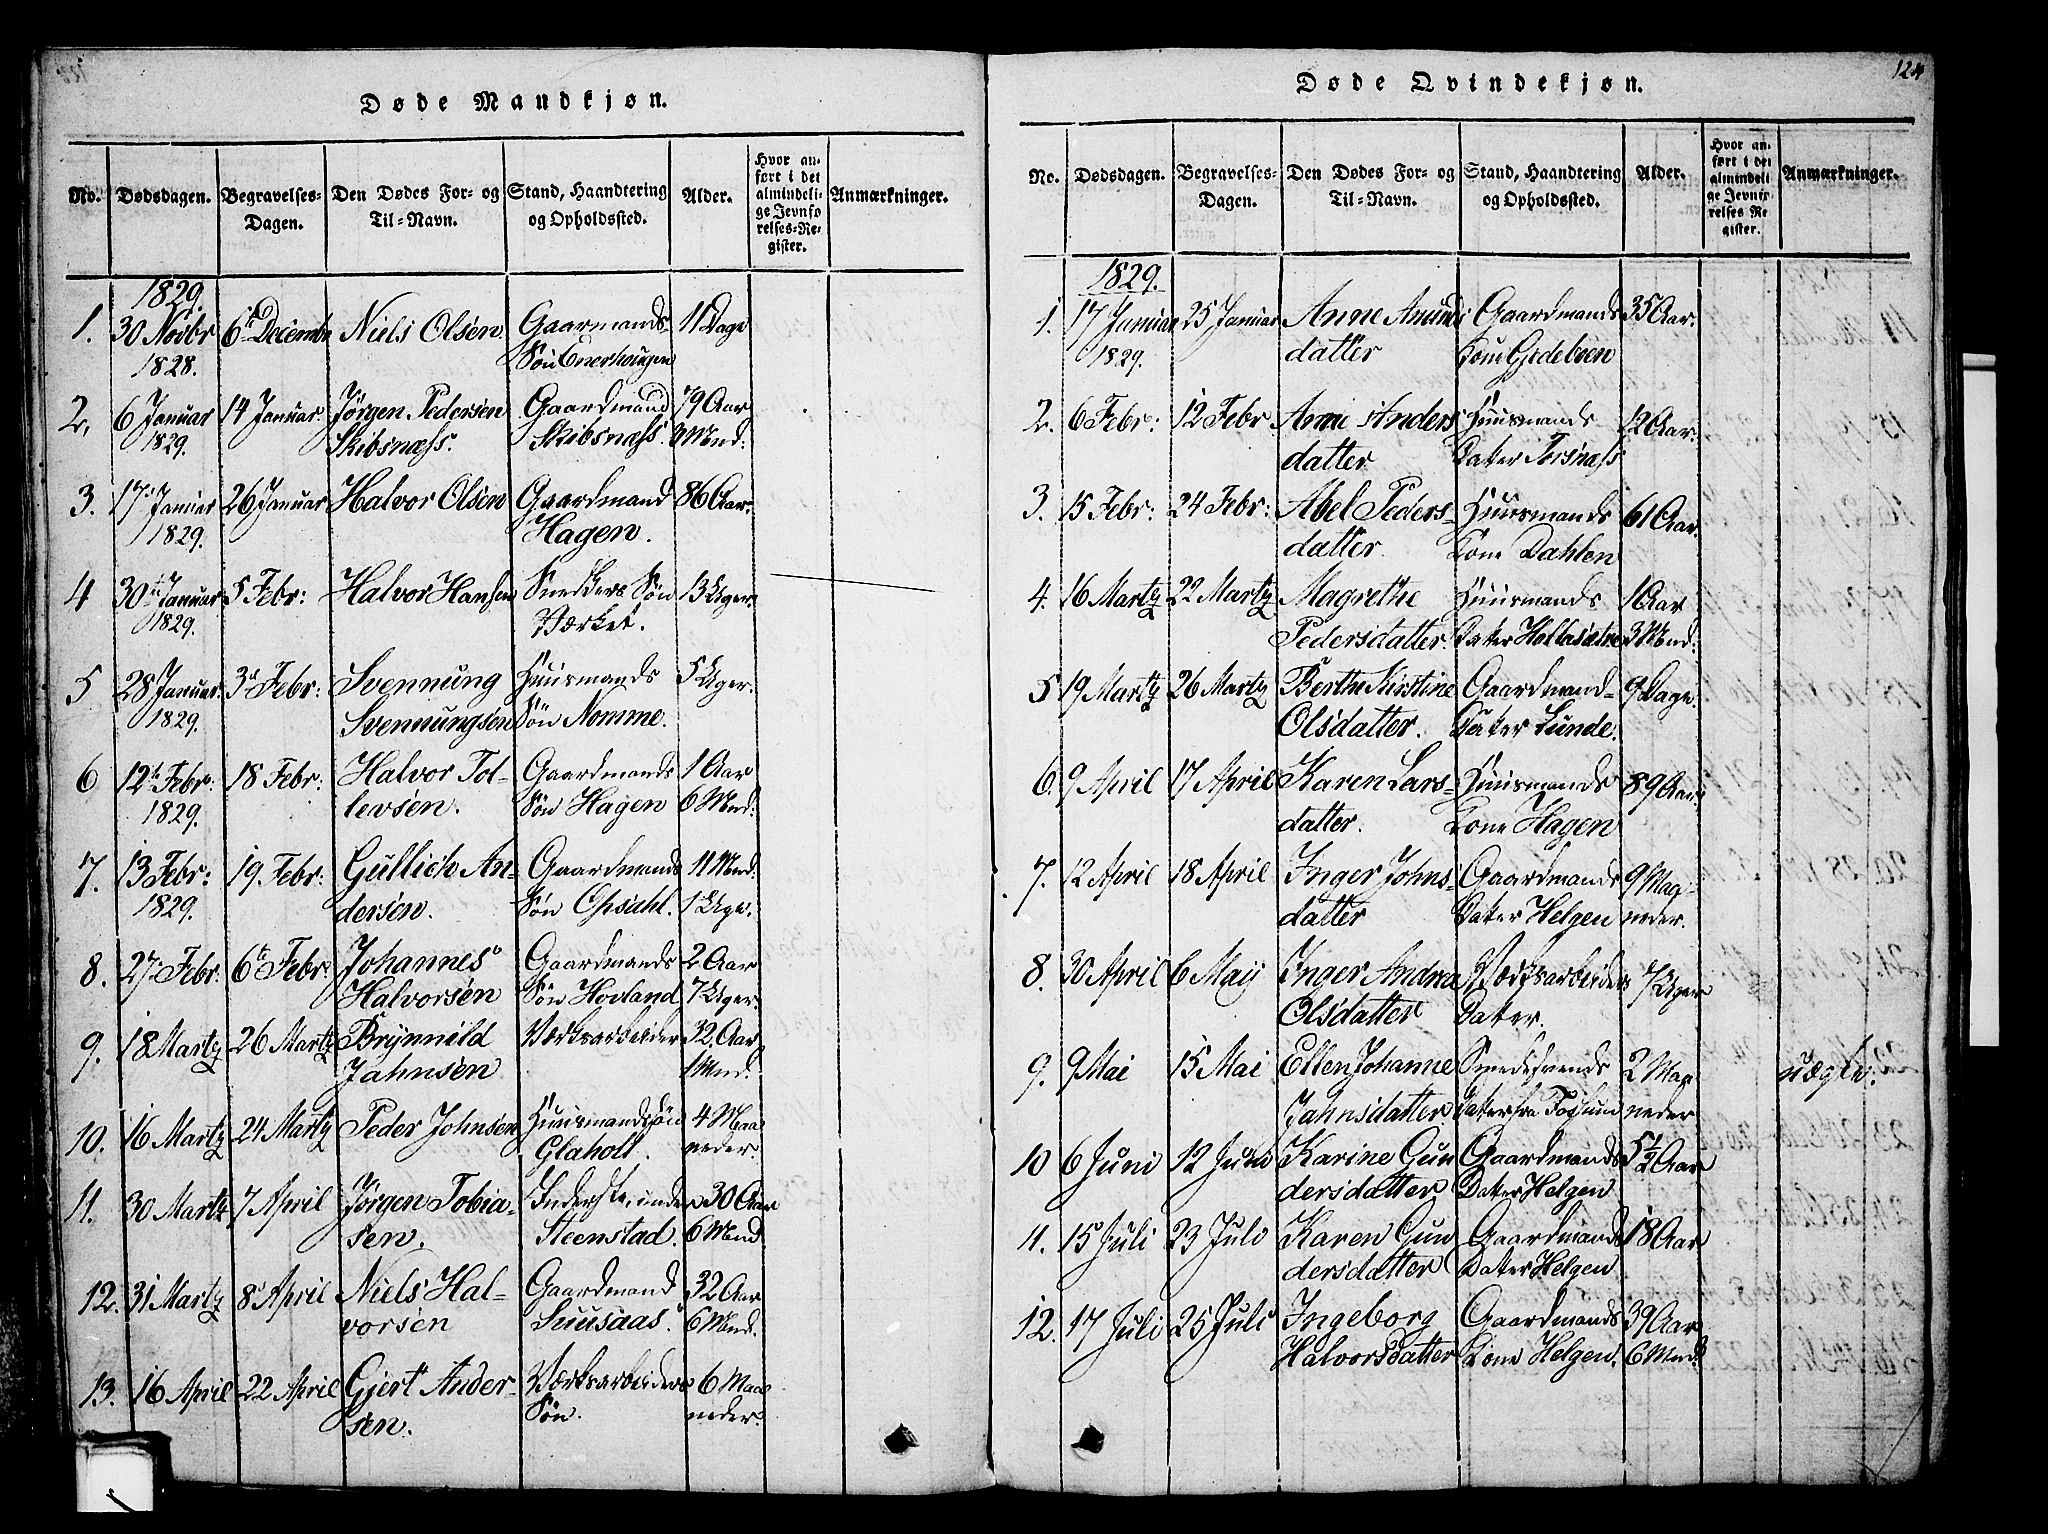 Døde Mandkjøn.
No. Dødsdagen. Begravelses-Dagen. Den Dødes For- og Til-Navn. Stand, Haandtering og Opholdssted. Alder. Hvor anført i det almindelige Jevnførelses-Register. Anmærkninger.
1829.
1. 30 Novbr 6te Decembr Niels Olsen. Gaarmands- 11 Dage
1828. Søn
2. 6 Januar 14 Januar. Jørgen Pedersen Gaardmand 79 Aar
1829. Skibsnæss. Skibsnæss. 9 Mnd.
3. 17 Januar 26 Januar Halvor Olsen Gaardmand 86 Aar.
1829. Hagen.
4 30te Januar 5 Febr: Halvor Hansen Snedkers Søn 13 Uger.
1829. Værket.
5 28 Januar. 3d Febr: Svennung Huusmands 5 Uger.
1829. Svennungsen Søn Nomme.
6 12te Febr: 18 Febr: Halvor Tol- Gaardmands 1 Aar
1829. levsen. Søn Hagen 6 Mnd.
7. 13 Febr: 19. Febr: Gullich An- Gaardmands 11 Mnd.
1829. dersen. Søn Opsahl. 1 Uge.
8. 27 Febr. 6te Febr: Johannes Gaardmands 2 Aar
Halvorsen Søn Hovland 7 Uger.
9. 18 Marty 26 Marty Brynnild Værksarbeider 32 Aar
Jahnsen 1 Mnd.
10. 16 Marty 24 Marty Peder Johnsen Huusmandssøn 4 Maa
Glaholt. neder.
11. 30 Marty 7 April Jørgen Tobia- Inderste, under 30 Aar
sen. Steenstad. 6 Mnd.
12. 31 Marty 8 April Niels Hal- Gaardmand 32 Aar
vorsen Suusaas. 6 Mnd.
13. 16 April 22 April Gjert Ander- Værksarbeiders 6 Maa
sen. Søn. neder.
124
Døde Qvindekjøn.
No. Dødsdagen. Begravelses-Dagen. Den Dødes For- og Til-Navn. Stand, Haandtering og Opholdssted. Alder. Hvor anført i det almindelige Jevnførelses Register. Anmærkninger.
1829.
1. 17 Januar 25 Januar Anne Amunds Gaardmands 35 Aar.
1829. datter Kone
2. 6 Febr: 12 Febr Anne Anders Huusmands 12 Aar.
datter Datter Torsnæss
3. 15 Febr: 24 Febr: Abel Peders- Huusmands 61 Aar.
datter. Kone Dahlen
4. 16 Marty 22 Marty Magrethe Huusmands 1 Aar
Pedersdatter. Datter 3 Mnd:
5 19 Marty 26 Marty Berthe Kirstine Gaardmand- 9 Dage.
Olsdatter. Datter Lunde.
6. 9 April 17 April Karen Lars- Huusmands 89 Aar.
datter. Kone Hagen
7. 12 April 18 April Inger Johns- Gaardmands 9 Maa-
datter Datter Helgen neder.
8. 30 April 6 Maij Inger Andrea Værksarbeiders 7 Uger
Olsdatter Datter.
9. 9 Mai 15 Mai Ellen Johanne Smedsvends 2 Maa uægte.
Jahnsdatter. Datter fra Fossum neder
10 6 Juni 12 Juni Karine Gun Gaardmands 5 1/2 Aar
dersdatter Datter Helgen
11. 15 Juli 23 Juli Karen Gun Gaardmands 18 Aar
dersdatter Datter Helgen
12. 17 Juli 25 Juli Ingeborg Gaardmands 39 Aar
Halvorsdatter Kone Helgen. 6 Mnd.